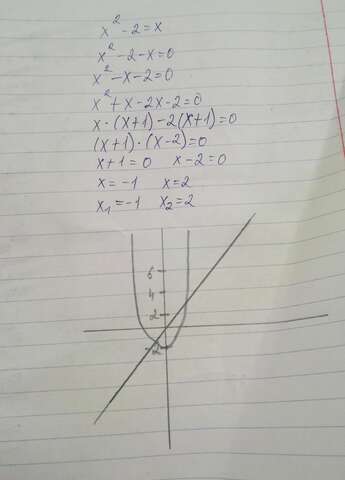 x² - 2 = x
x² - 2 - x = 0
x² - x - 2 = 0
x² + x - 2x - 2 = 0
x · (x+1) - 2(x+1) = 0
(x+1) · (x-2) = 0
x + 1 = 0 x - 2 = 0
x = -1 x = 2
x₁ = -1 x₂ = 2
6
4
2
-2